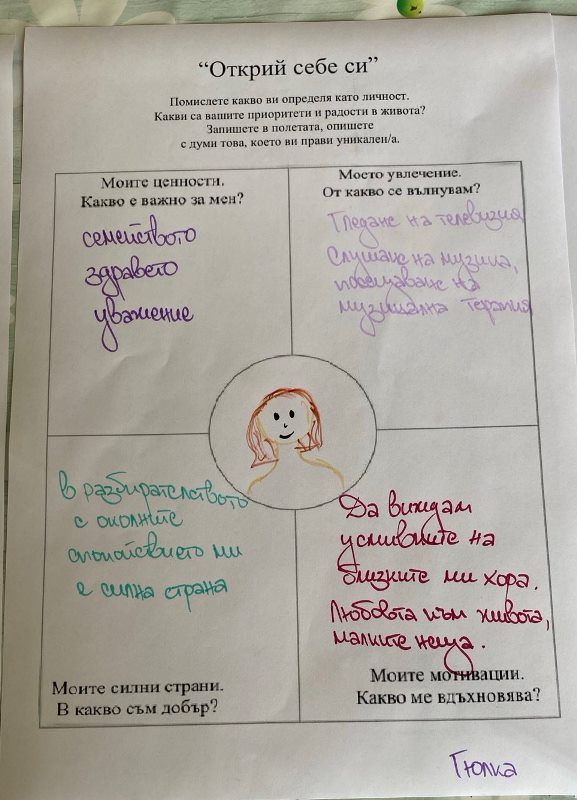 “Открий себе си”
Помислете какво ви определя като личност.
Какви са вашите приоритети и радости в живота?
Запишете в полетата, опишете
с думи това, което ви прави уникален/а.
Моите ценности.
Какво е важно за мен?
семейството
здравето
уважение
Моето увлечение.
От какво се вълнувам?
Гледане на телевизия
Слушане на музика,
посещаване на
музикална терапия
в разбирателството
с околните
спокойствието ми
е силна страна
Моите силни страни.
В какво съм добър?
Да виждам
усмивките на
близките ми хора.
Любовта към живота,
малките неща.
Моите мотивации.
Какво ме вдъхновява?
Гюлка